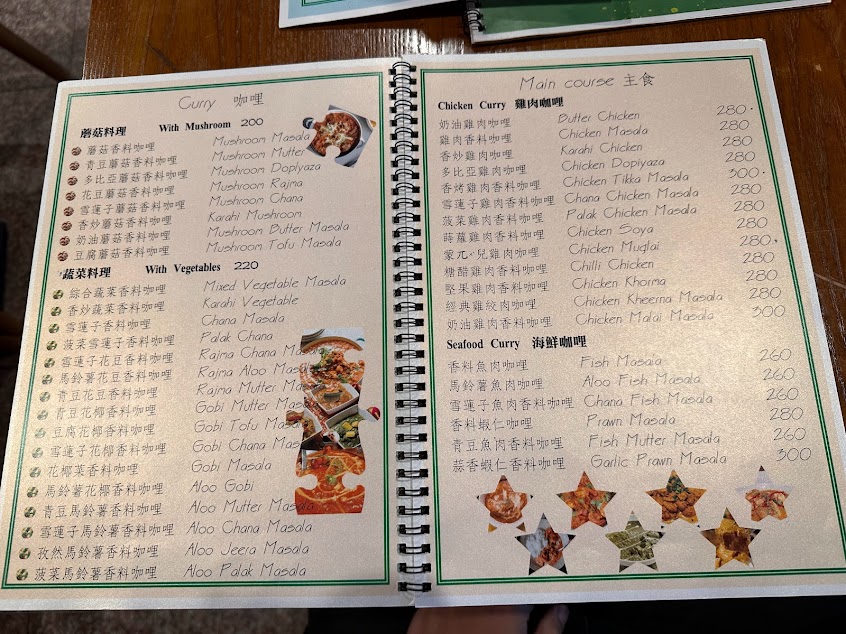 Curry 咖哩
蘑菇料理 With Mushroom 200
蘑菇香料咖哩 Mushroom Masala
青豆蘑菇香料咖哩 Mushroom Mutter
多比亞蘑菇香料咖哩 Mushroom Dopiyaza
花豆蘑菇香料咖哩 Mushroom Rajma
雪蓮子蘑菇香料咖哩 Mushroom Chana
香炒蘑菇香料咖哩 Karahi Mushroom
奶油蘑菇香料咖哩 Mushroom Butter Masala
豆腐蘑菇香料咖哩 Mushroom Tofu Masala
蔬菜料理 With Vegetables 220
綜合蔬菜香料咖哩 Mixed Vegetable Masala
香炒蔬菜香料咖哩 Karahi Vegetable
雪蓮子香料咖哩 Chana Masala
菠菜雪蓮子香料咖哩 Palak Chana
雪蓮子花豆香料咖哩 Rajma Chana
馬鈴薯花豆香料咖哩 Rajma Aloo Mas
青豆花豆香料咖哩 Rajma Mutter M
青豆花椰香料咖哩 Gobi Mutter Mas
豆腐花椰香料咖哩 Gobi Tofu Mas
雪蓮子花椰香料咖哩 Gobi Chana Mas
花椰菜香料咖哩 Gobi Masala
馬鈴薯花椰香料咖哩 Aloo Gobi
青豆馬鈴薯香料咖哩 Aloo Mutter Masala
雪蓮子馬鈴薯香料咖哩 Aloo Chana Masala
孜然馬鈴薯香料咖哩 Aloo Jeera Masala
菠菜馬鈴薯香料咖哩 Aloo Palak Masala
Main course 主食
Chicken Curry 雞肉咖哩
奶油雞肉咖哩 Butter Chicken 280
雞肉香料咖哩 Chicken Masala 280
香炒雞肉咖哩 Karahi Chicken 280
多比亞雞肉咖哩 Chicken Dopiyaza 280
香烤雞肉香料咖哩 Chicken Tikka Masala 300
雪蓮子雞肉香料咖哩 Chana Chicken Masala 280
菠菜雞肉香料咖哩 Palak Chicken Masala 280
蒔蘿雞肉香料咖哩 Chicken Soya 280
蒙兀兒雞肉香料咖哩 Chicken Muglai 280
糖醋雞肉香料咖哩 Chilli Chicken 280
堅果雞肉香料咖哩 Chicken Khorma 280
經典雞絞肉咖哩 Chicken Kheema Masala 280
奶油雞肉香料咖哩 Chicken Malai Masala 300
Seafood Curry 海鮮咖哩
香料魚肉咖哩 Fish Masala 260
馬鈴薯魚肉咖哩 Aloo Fish Masala 260
雪蓮子魚肉香料咖哩 Chana Fish Masala 260
香料蝦仁咖哩 Prawn Masala 280
青豆魚肉香料咖哩 Fish Mutter Masala 260
蒜香蝦仁香料咖哩 Garlic Prawn Masala 300